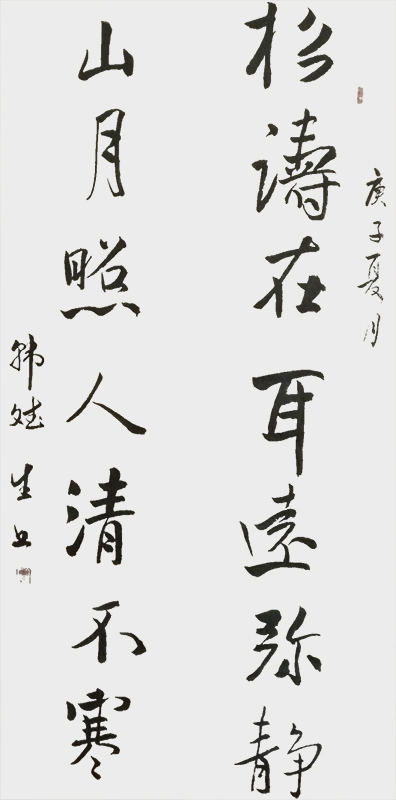 庚子夏月
杉濤在耳遠弥静
山月照人清不寒
韩斌生书